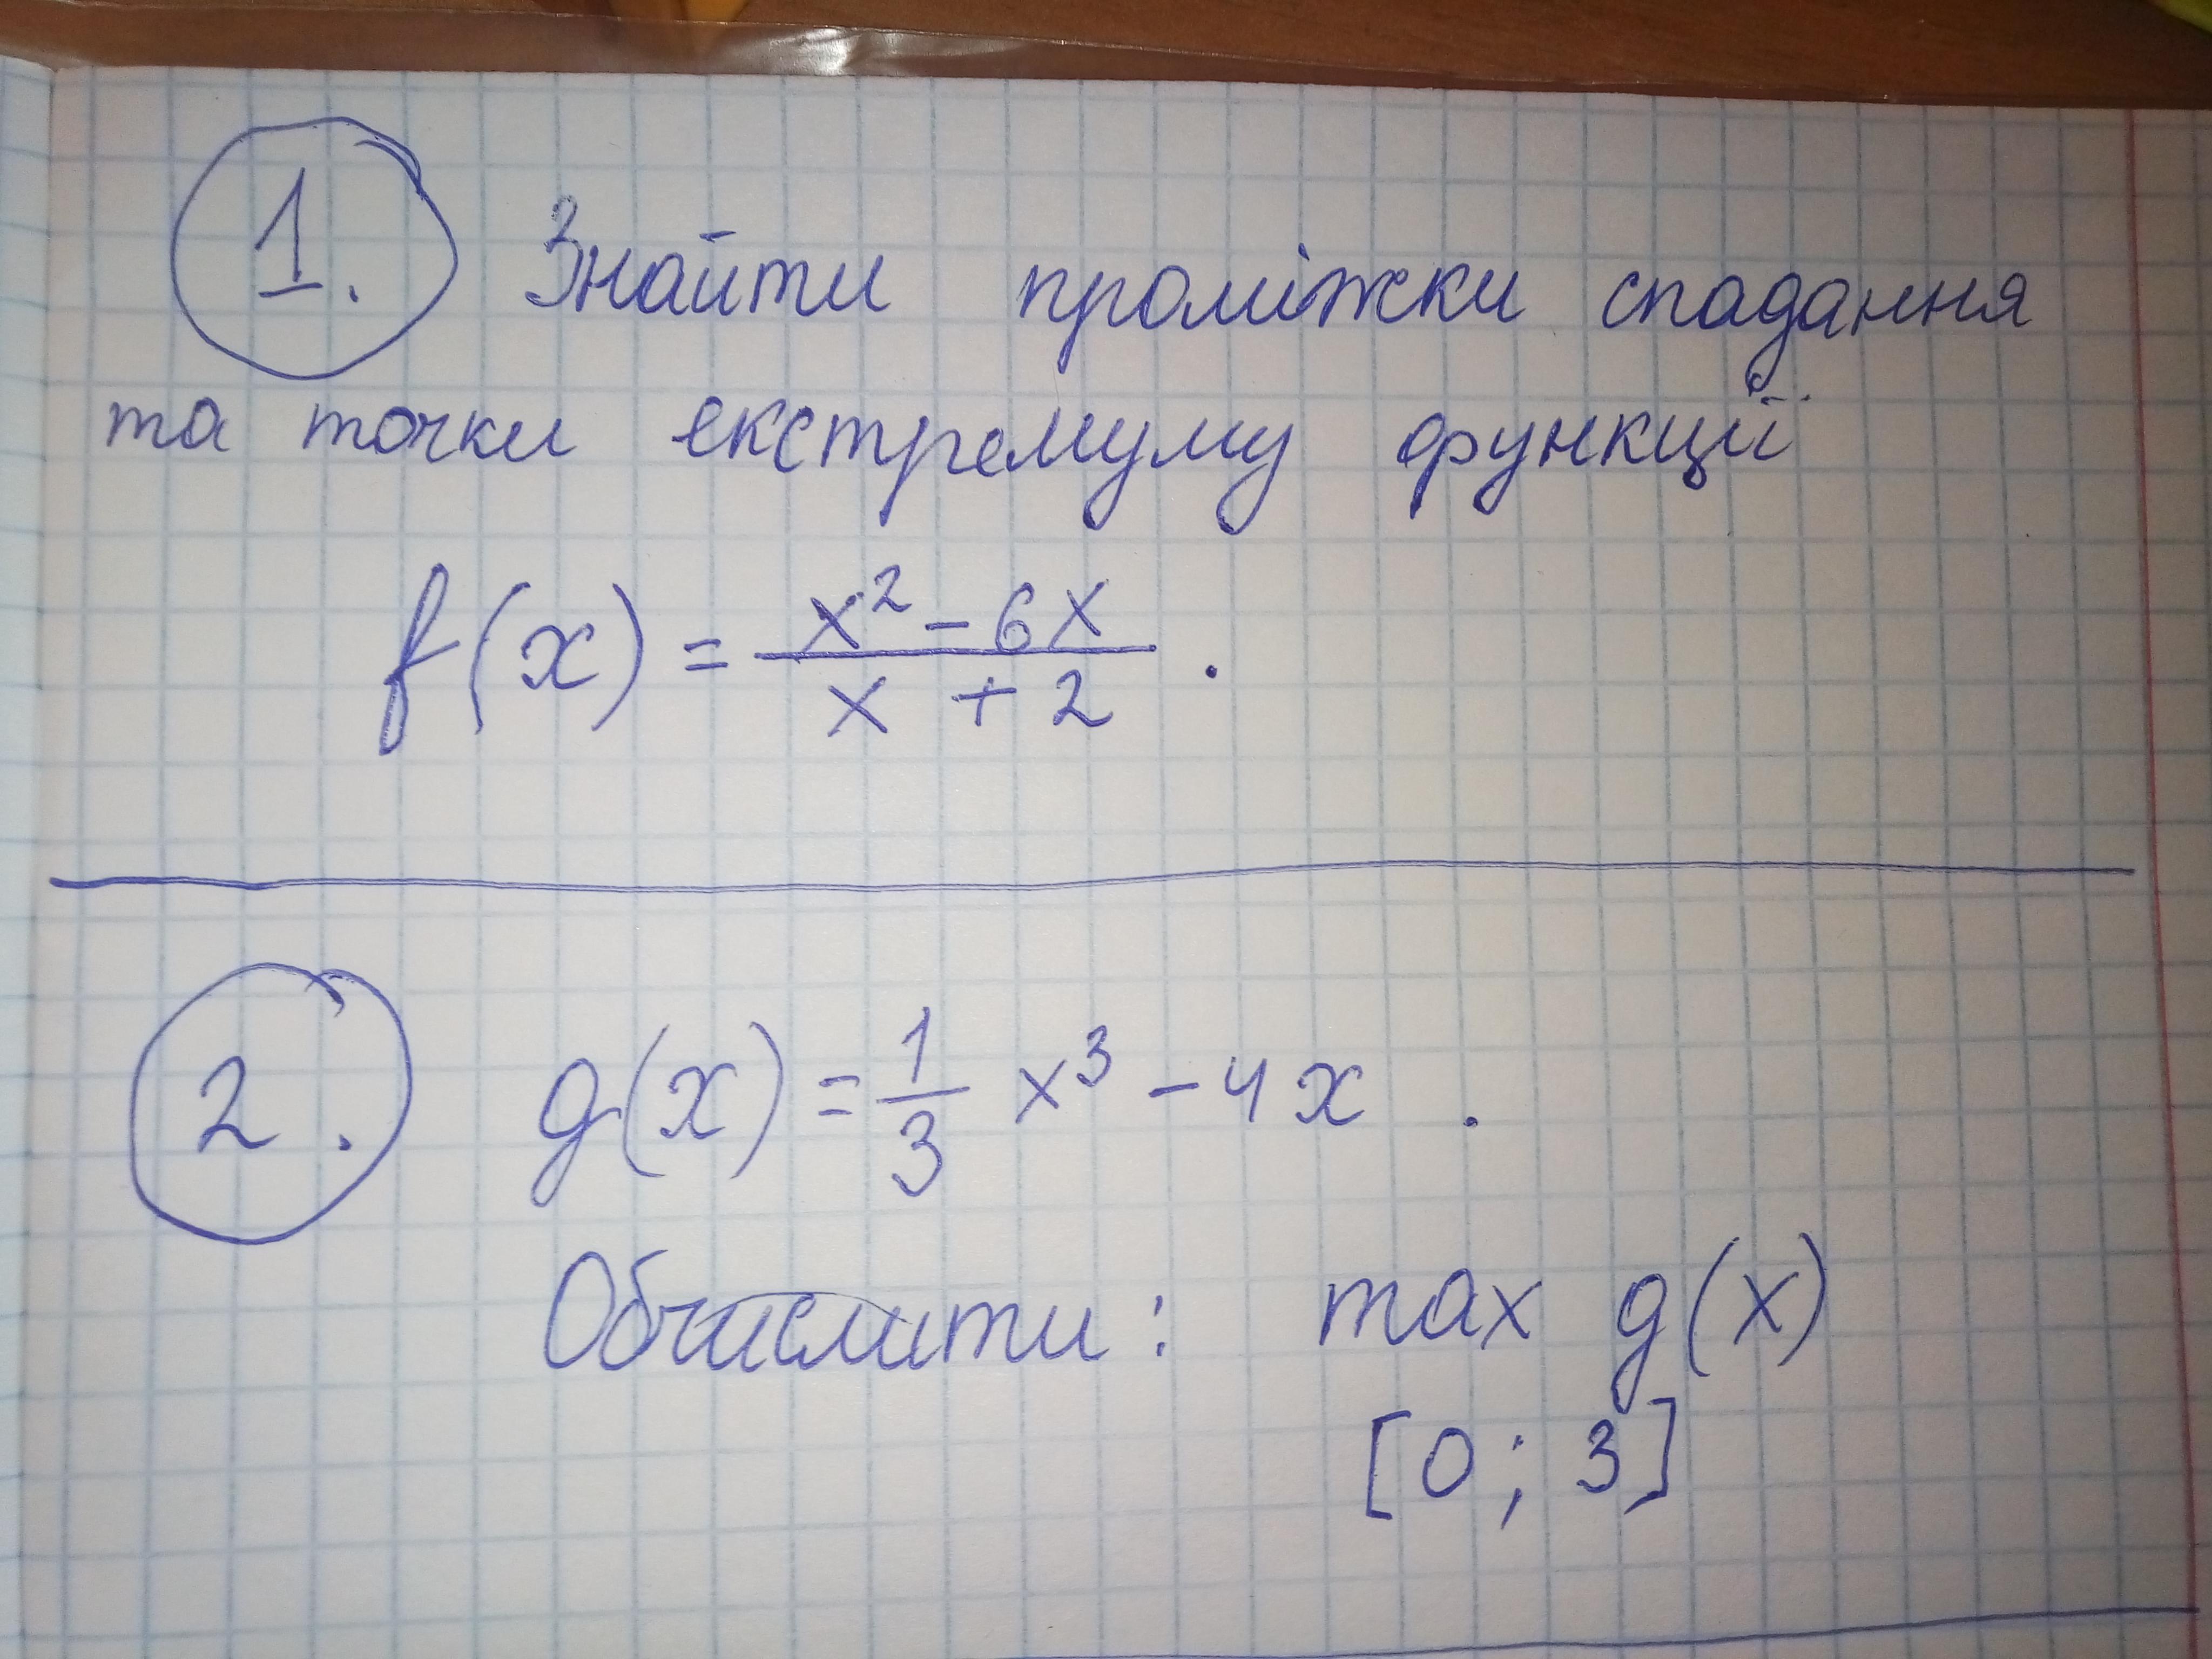 1. Знайти проміжки спадання
та точки екстремуму функції
f(x) = \frac{x^2 - 6x}{x + 2} .
2. g(x) = \frac{1}{3} x^3 - 4x .
Обчислити : max g(x)
[0 ; 3]